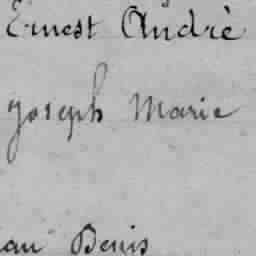 Ernest Andrè
Joseph Marie
an Denis